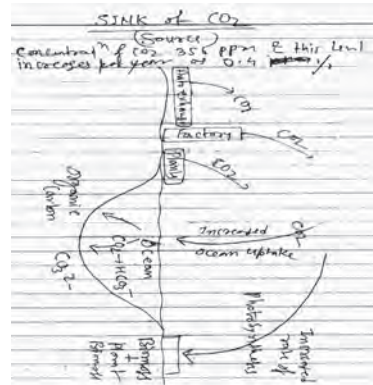 SINK of CO2
(Source)
Concentratn of CO2 356 ppm & this level
increases per year at 0.4 %
CO2
Factory
CO2
CO2
Organic
Carbon
CO2
Ocean
CO2→HCO3-
CO3 2-
Increased
Ocean uptake
Photosynthesis
Increased
rate of
Biomass
+
plant
Biomass